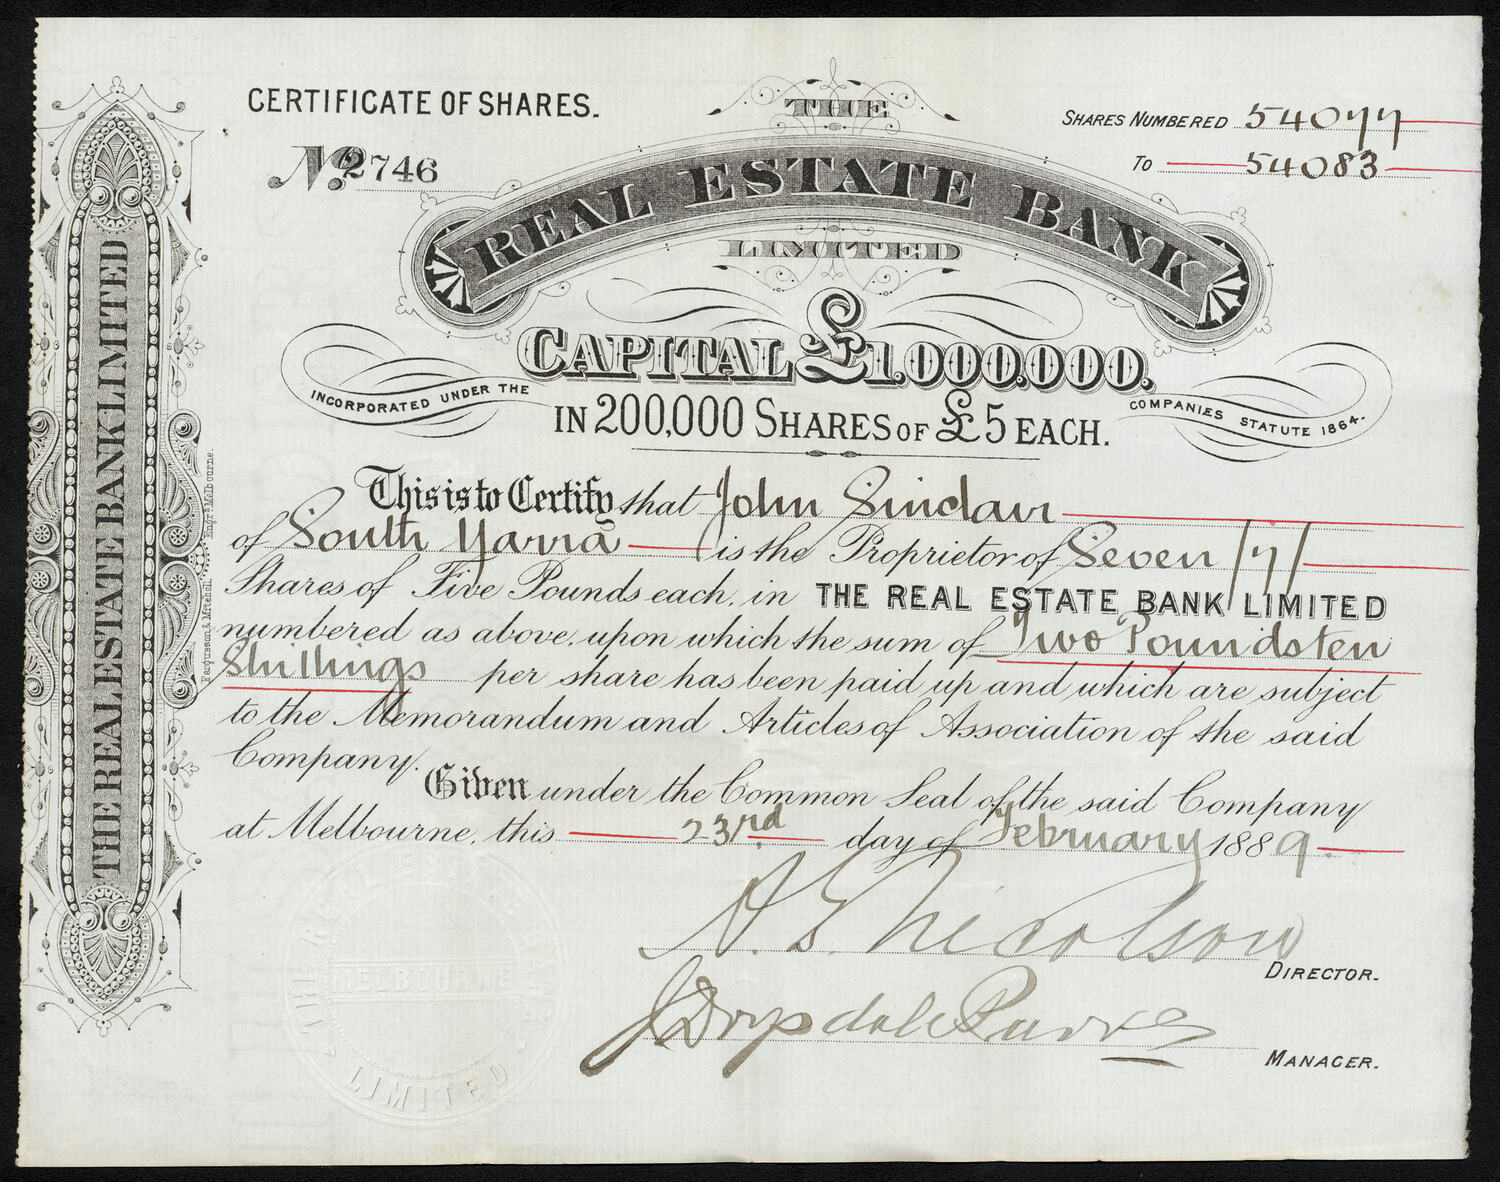 CERTIFICATE OF SHARES.
No. 2746
THE
REAL ESTATE BANK
LIMITED
SHARES NUMBERED 54077
TO 54083
CAPITAL £1.000.000.
INCORPORATED UNDER THE
COMPANIES STATUTE 1864.
IN 200,000 SHARES OF £5 EACH.
This is to Certify that John Sinclair
of South Yarra is the Proprietor of Seven /7/
Shares of Five Pounds each, in THE REAL ESTATE BANK LIMITED
numbered as above, upon which the sum of Two Pounds ten
Shillings per share has been paid up and which are subject
to the Memorandum and Articles of Association of the said
Company.
Given under the Common Seal of the said Company
at Melbourne, this 23rd day of February 1889.
A. S. Nicolson
DIRECTOR.
J Drysdale Purves
MANAGER.
THE REAL ESTATE BANK LIMITED
Fergusson & Mitchell Engrs Melbourne.
THE REAL ESTATE BANK
MELBOURNE
LIMITED